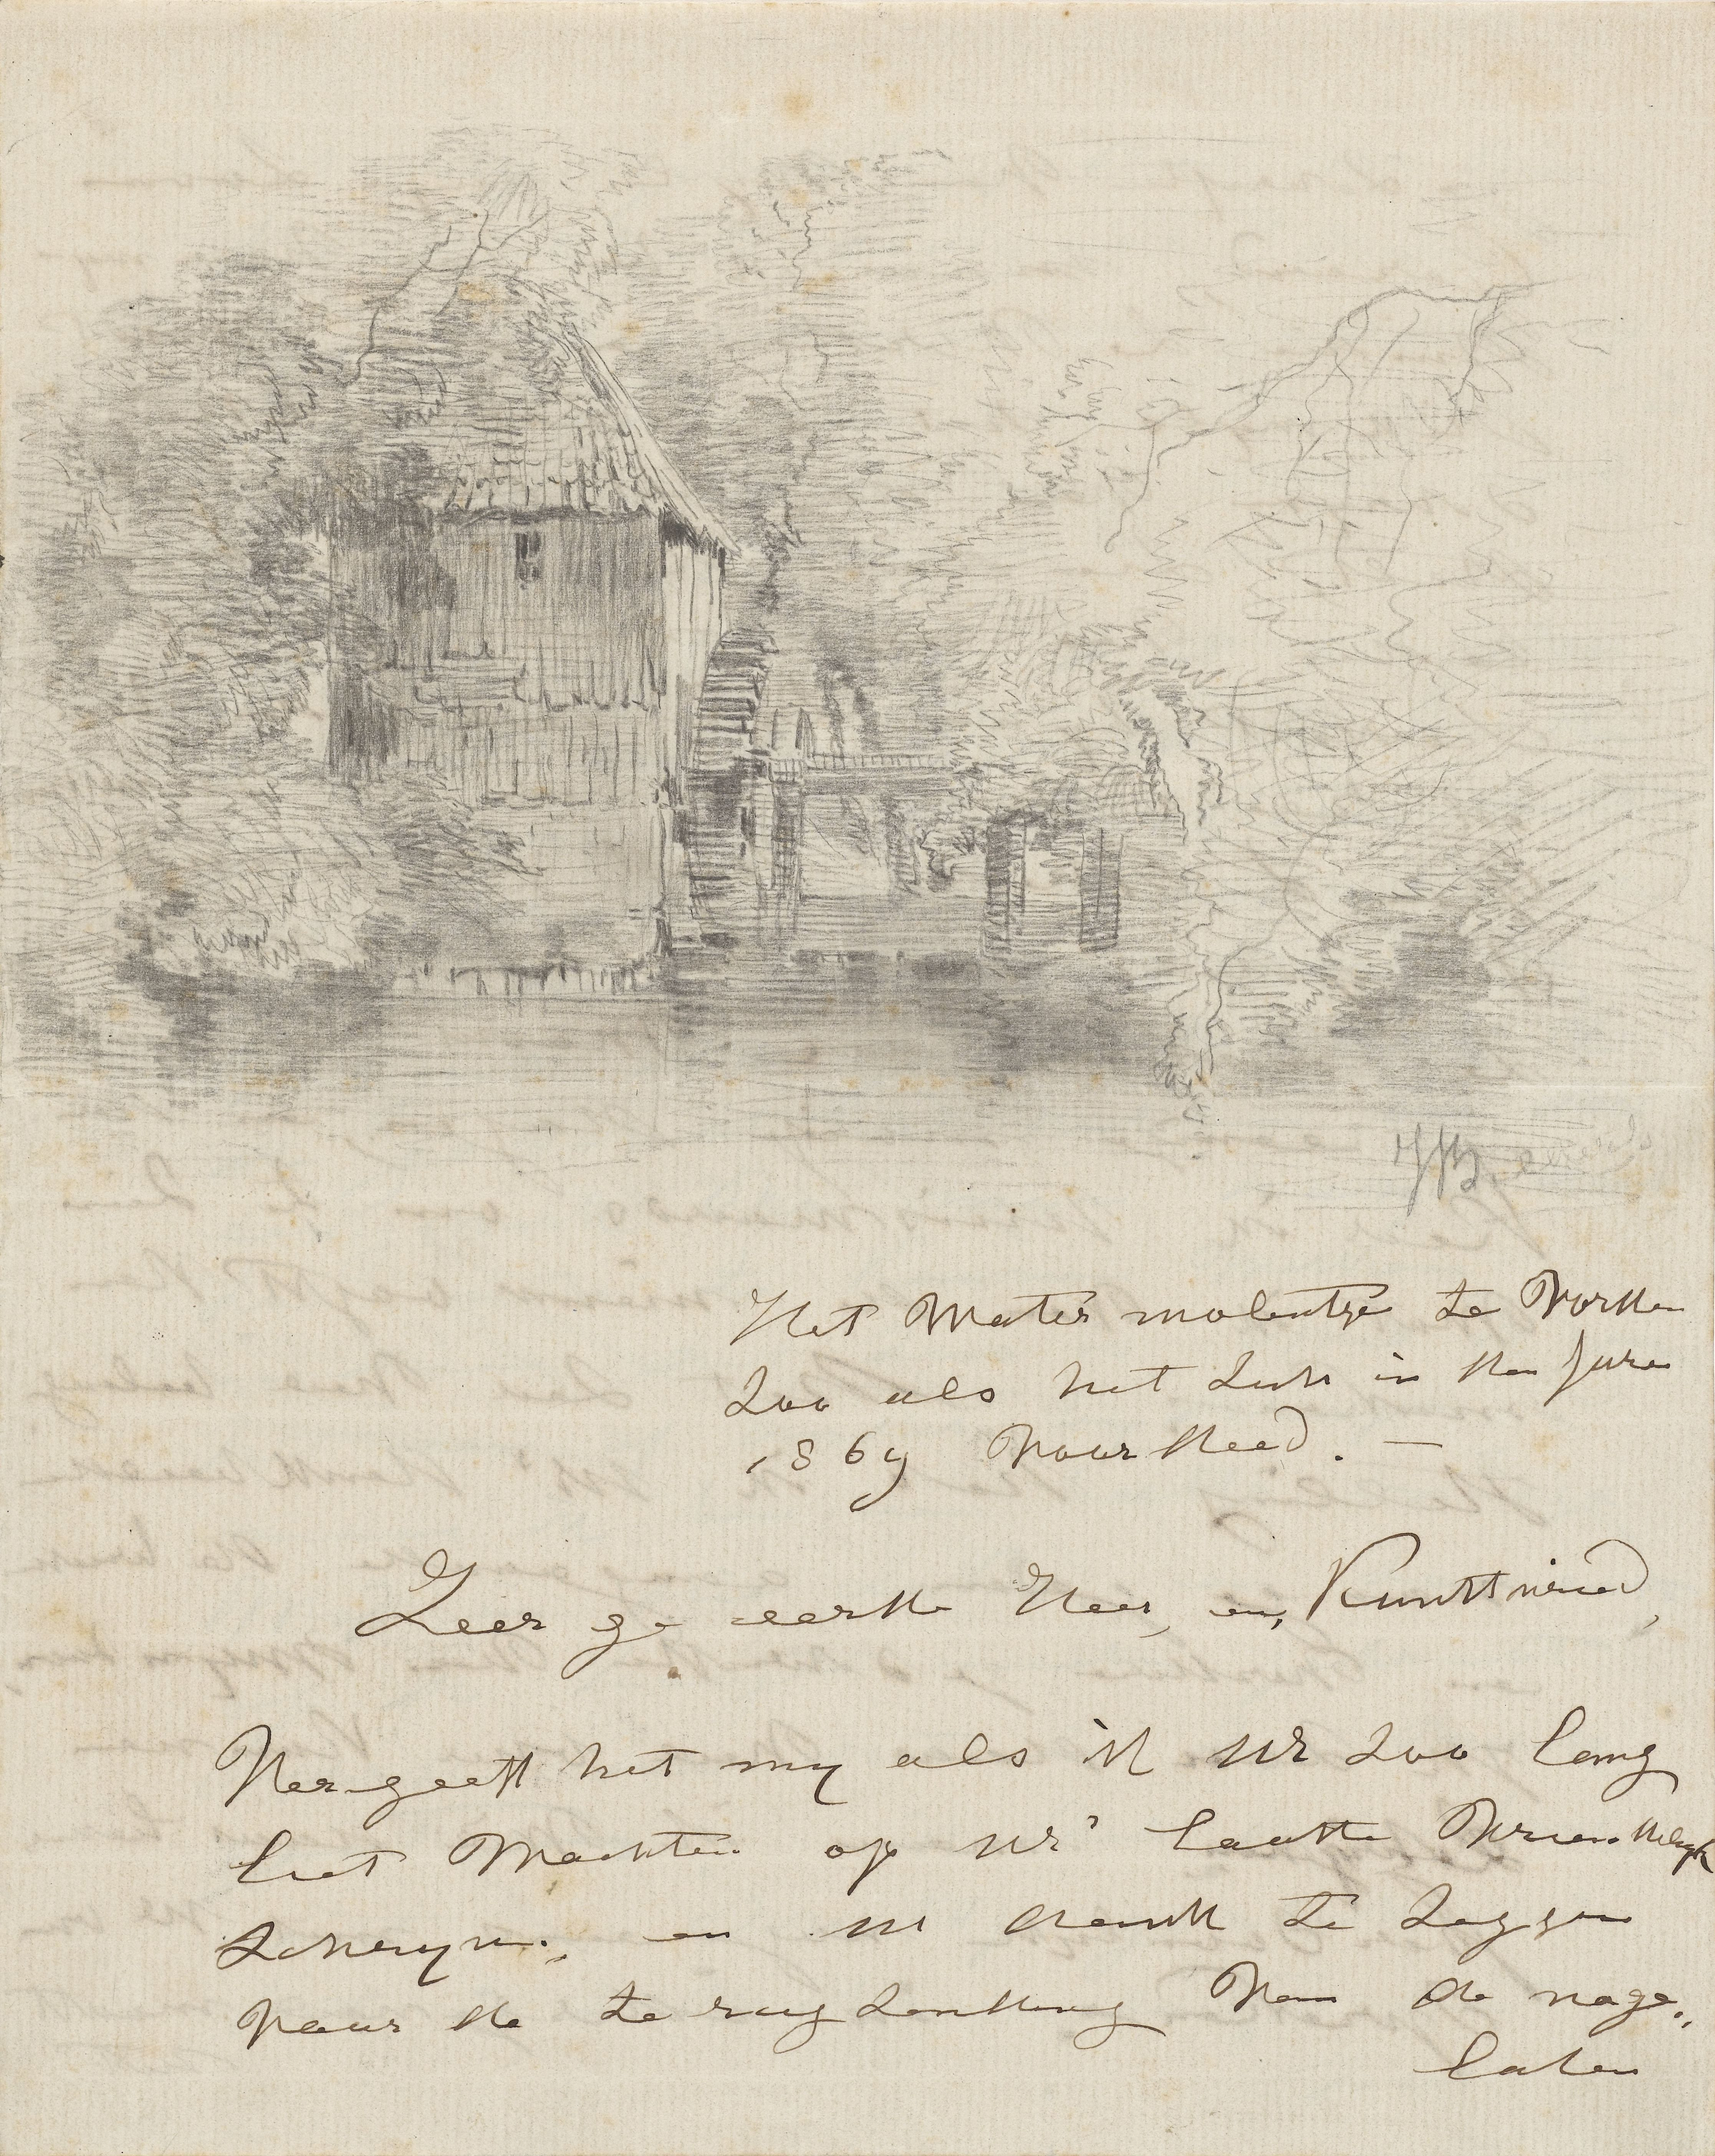 Het Water molentje te Vorden
zoo als het zich in den jare
1869 voordeed. —
Zeer ge eerde Heer, en, Kunstvriend,
Vergeeft het my als ik UE zoo lang
liet Wachten op UE' laatste Vriendelyk
schryven., en U dank te zeggen
voor de te rug zending Van de nage„
laten